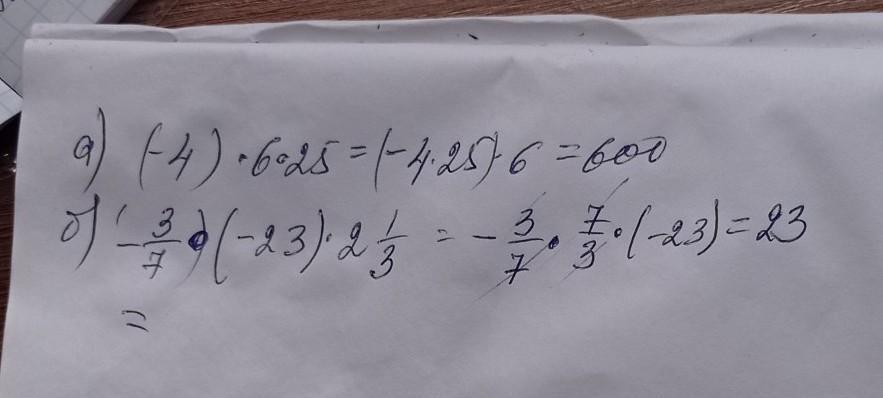 а) (-4)·6·25=(-4·25)·6=600
б) (-3/7)·(-23)·2 1/3 = -3/7·7/3·(-23)=23
=